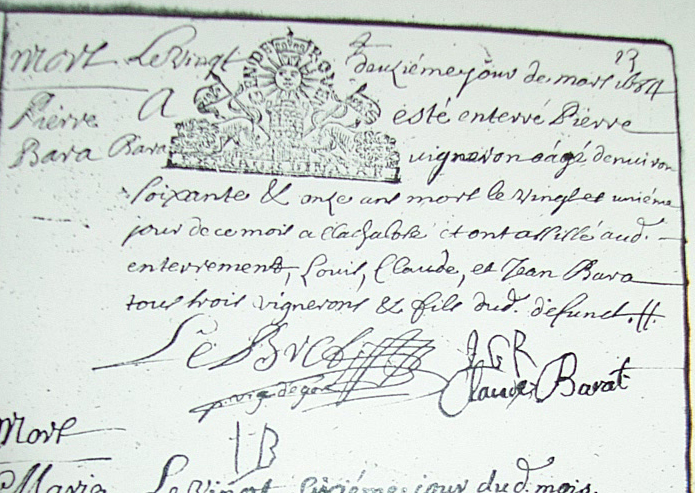 23
mort Le vingt deuxième jour de mars 1684
Pierre A esté enterré Pierre
Bara Bara vigneron âgé denviron
soixante & onze ans mort le vingt et unième
jour de ce mois a et ont assisté aud.
enterrement, Louis, Claude, et Jean Bara
tous trois vignerons & fils dud. defunct.
J G R
Claude Barat
J B
Mort
Marie Le vingt sixième jour dud. mois.